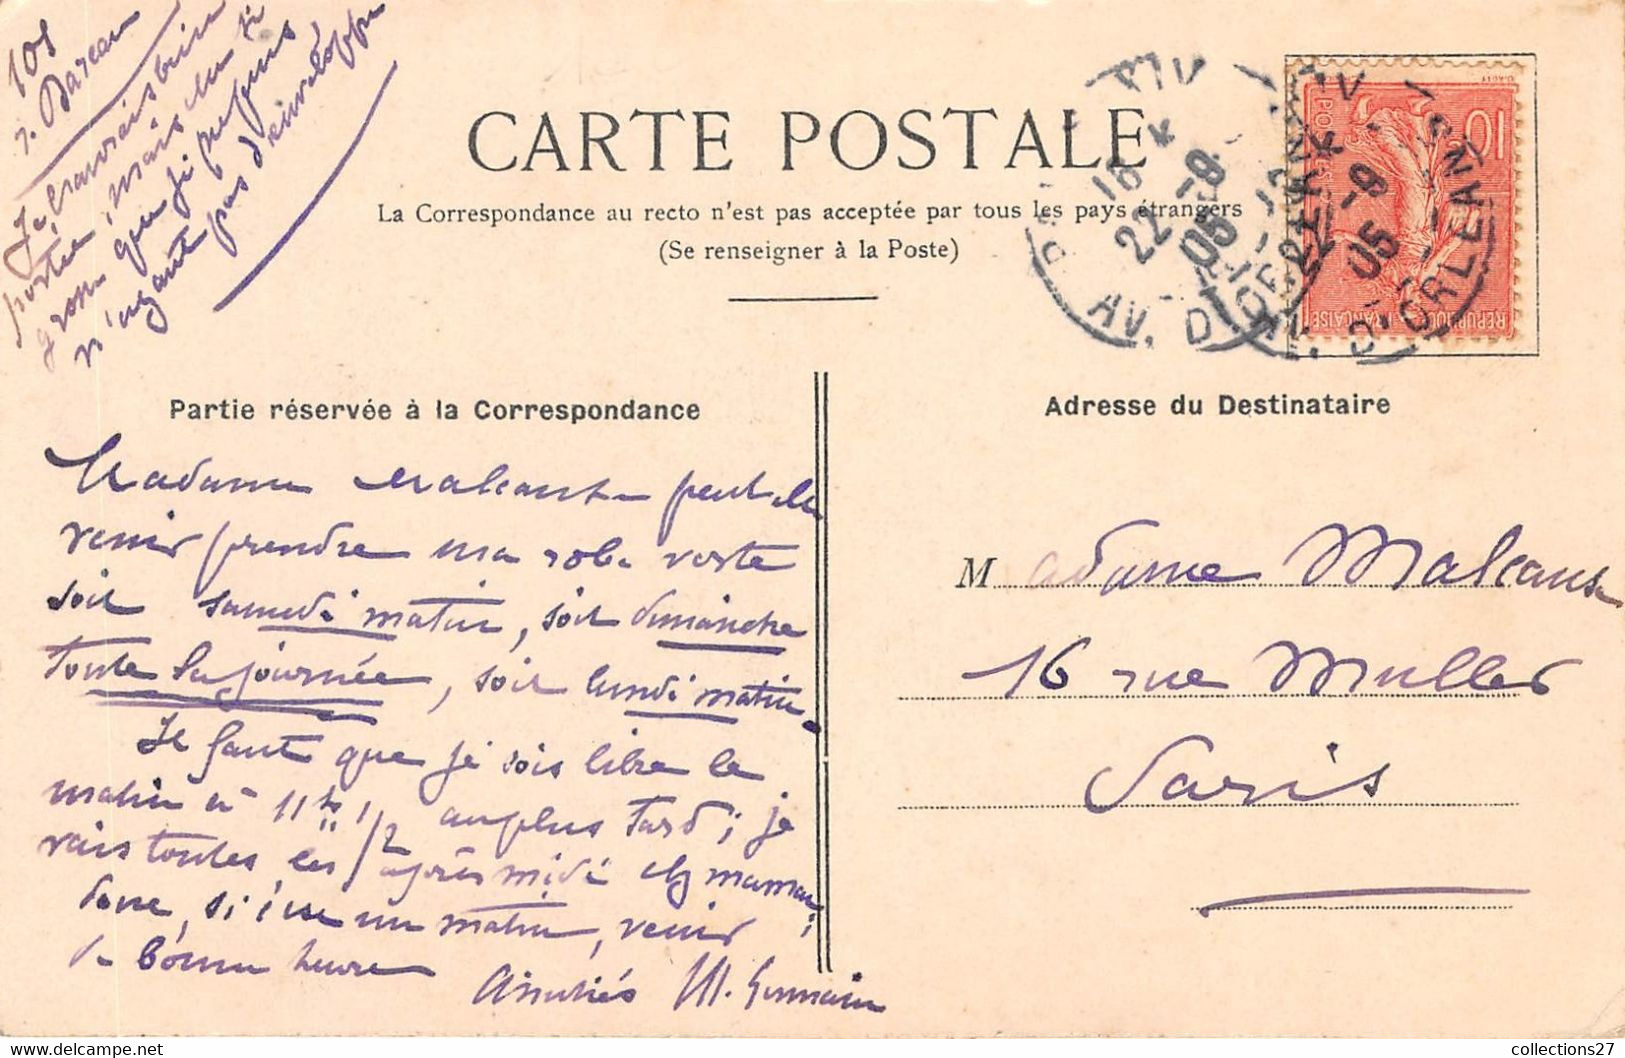 108
r. Dareau
Je l'aurais bien
portée, mais
que je
n'ayant pas d'enveloppe
CARTE POSTALE
La Correspondance au recto n'est pas acceptée par tous les pays étrangers
(Se renseigner à la Poste)
10
POSTES
RÉPUBLIQUE FRANÇAISE
16 K
22 -9
05
AV. D'ORLEANS
22 -9
05
AV. D'ORLEANS
Partie réservée à la Correspondance
Adresse du Destinataire
Madame peut elle
venir prendre ma robe verte
soit samedi matin, soit dimanche
toute la journée, soit lundi matin.
Il faut que je sois libre le
matin à 11 hs 1/2 au plus tard ; je
vais toutes les après midi chez maman ;
donc, si c'est un matin, venir
de bonne heure
Amitiés M. Germain
Madame
16 rue Muller
Paris
collections27